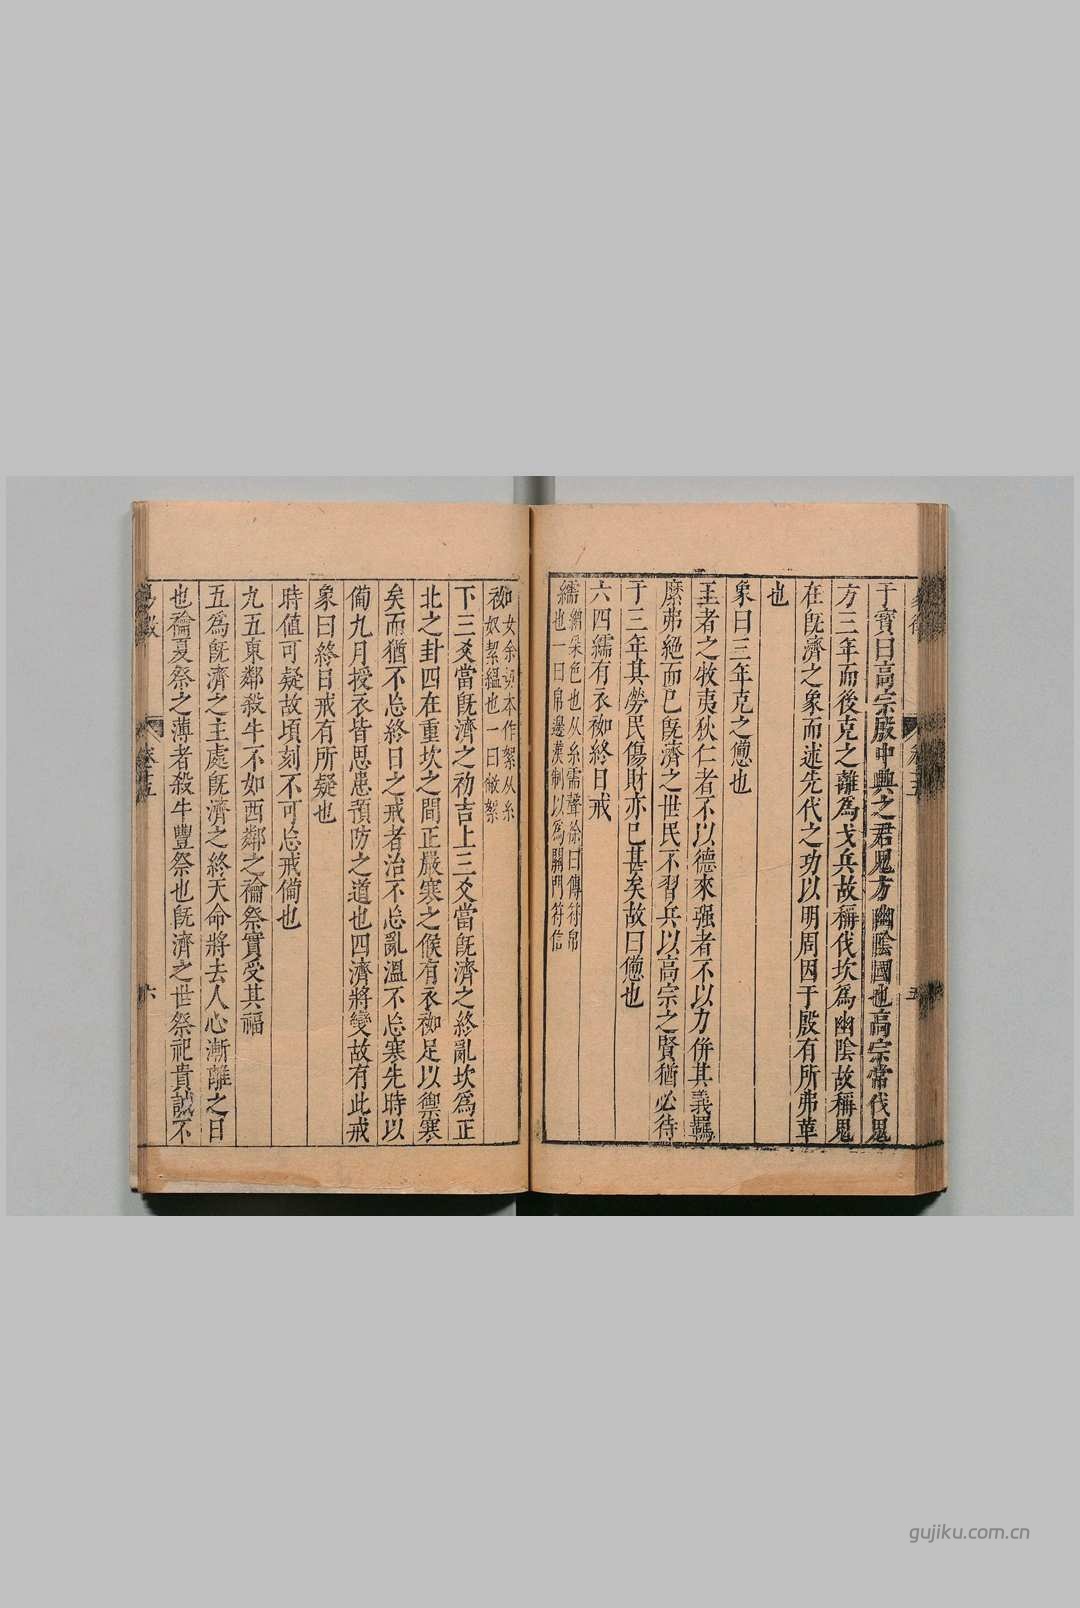 干寶曰高宗殷中興之君鬼方幽陰國也高宗常伐鬼
方三年而後克之離為戈兵故稱伐坎為幽陰故稱鬼
在旣濟之象而述先代之功以明周因于殷有所弗革
也
象曰三年克之憊也
王者之牧夷狄仁者不以德來强者不以力併其義羈
縻弗絕而已旣濟之世民不習兵以高宗之賢猶必待
于三年其勞民傷財亦已甚矣故曰憊也
六四繻有衣袽終日戒
繻繒采色也从糸需聲徐曰傳符帛
也一曰帛邊漢制以為關門符信
袽女余切本作絮从糸
奴絮緼也一曰敝絮
下三爻當旣濟之初吉上三爻當旣濟之終亂坎為正
北之卦四在重坎之間正嚴寒之候有衣袽足以禦寒
矣而猶不忘終日之戒者治不忘亂溫不忘寒先時以
備九月授衣皆思患預防之道也四濟將變故有此戒
象曰終日戒有所疑也
時值可疑故頃刻不可忘戒備也
九五東鄰殺牛不如西鄰之禴祭實受其福
五為旣濟之主處旣濟之終天命將去人心漸離之日
也禴夏祭之薄者殺牛豐祭也旣濟之世祭祀貴誠不
五
六
gujiku.com.cn